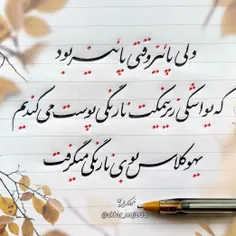 ولی پائیز وقتی پائیز بود
که یواشکی زیر نیمکت نارنگی پوست می کندیم
یهو کلاس بوی نارنگی میگرفت